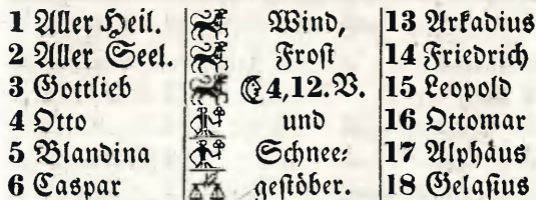 1 Aller Heil. Wind, 13 Arkadius
2 Aller Seel. Frost 14 Friedrich
3 Gottlieb ☾ 4,12. V. 15 Leopold
4 Otto und 16 Ottomar
5 Blandina Schnee- 17 Alphäus
6 Caspar gestöber. 18 Gelasius